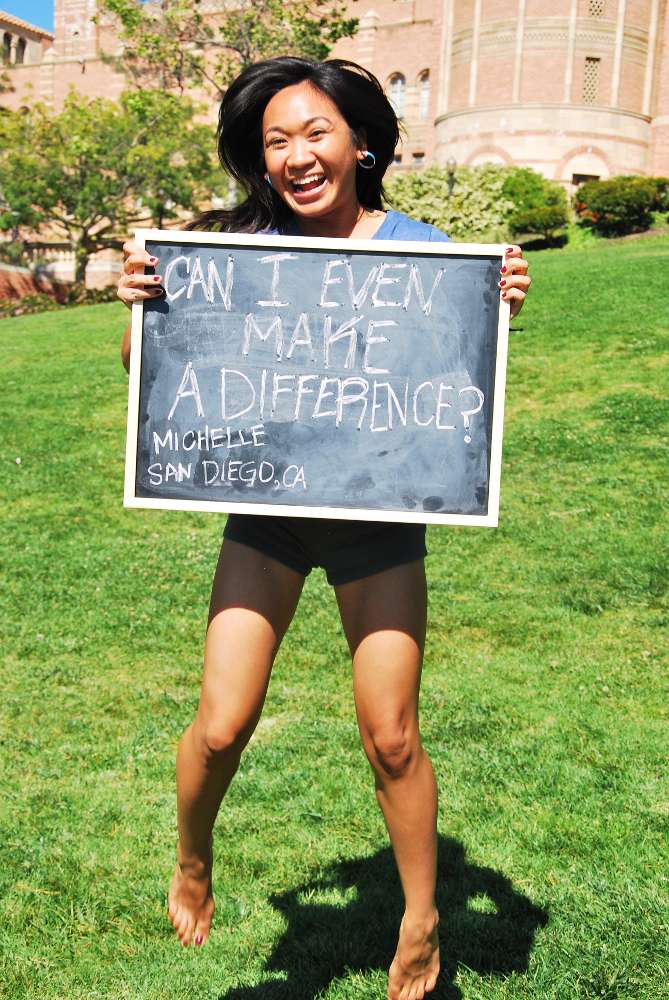 CAN I EVEN
MAKE
A DIFFERENCE?
MICHELLE
SAN DIEGO, CA